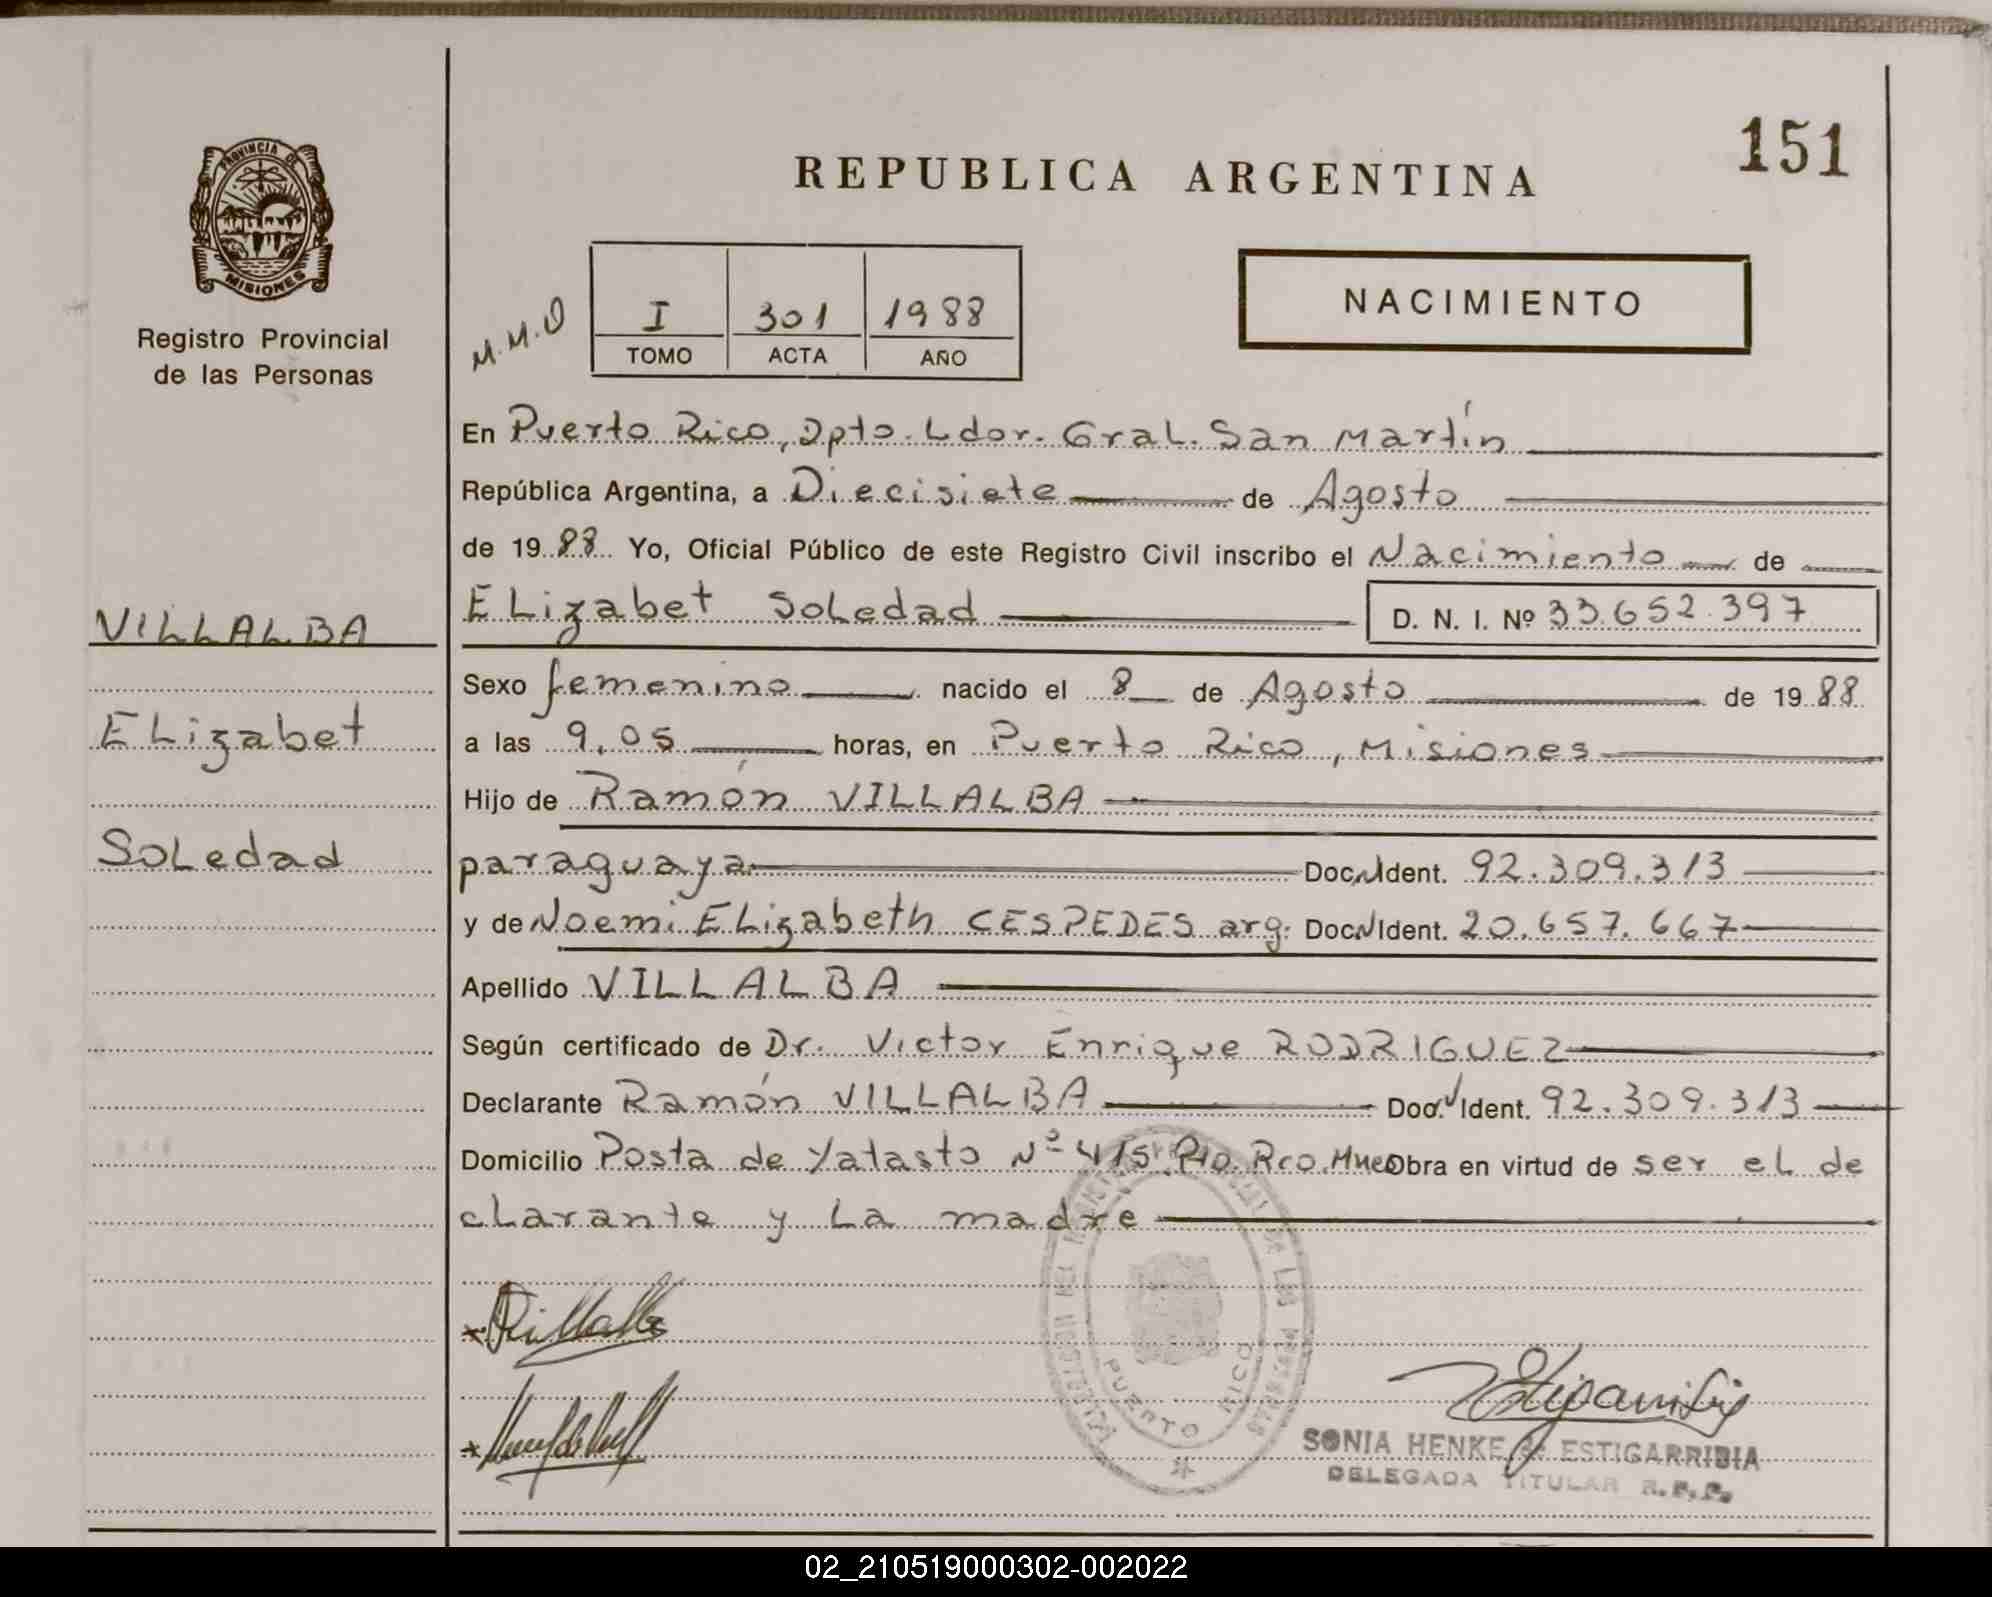 151
REPUBLICA ARGENTINA
PROVINCIA DE
MISIONES
Registro Provincial
de las Personas
M.M.O
I 301 1988
TOMO ACTA AÑO
NACIMIENTO
En Puerto Rico, Dpto. Ldor. Gral. San Martín
República Argentina, a Diecisiete de Agosto
de 1988 Yo, Oficial Público de este Registro Civil inscribo el Nacimiento de
ELizabet SoLedad D. N. I. Nº 33.652.397
VILLALBA
ELizabet
SoLedad
Sexo femenino nacido el 8 de Agosto de 1988
a las 9,05 horas, en Puerto Rico, Misiones
Hijo de Ramón VILLALBA
paraguaya Doc. Ident. 92.309.313
y de Noemi ELizabeth CESPEDES arg. Doc. Ident. 20.657.667
Apellido VILLALBA
Según certificado de Dr. Victor Enrique RODRIGUEZ
Declarante Ramón VILLALBA Doc. Ident. 92.309.313
Domicilio Posta de Yatasto Nº 415 Pto. Rco. Mnes Obra en virtud de ser el de
clarante y La madre
PUERTO RICO
SONIA HENKE de ESTIGARRIBIA
DELEGADA TITULAR R.P.P.
02_210519000302-002022